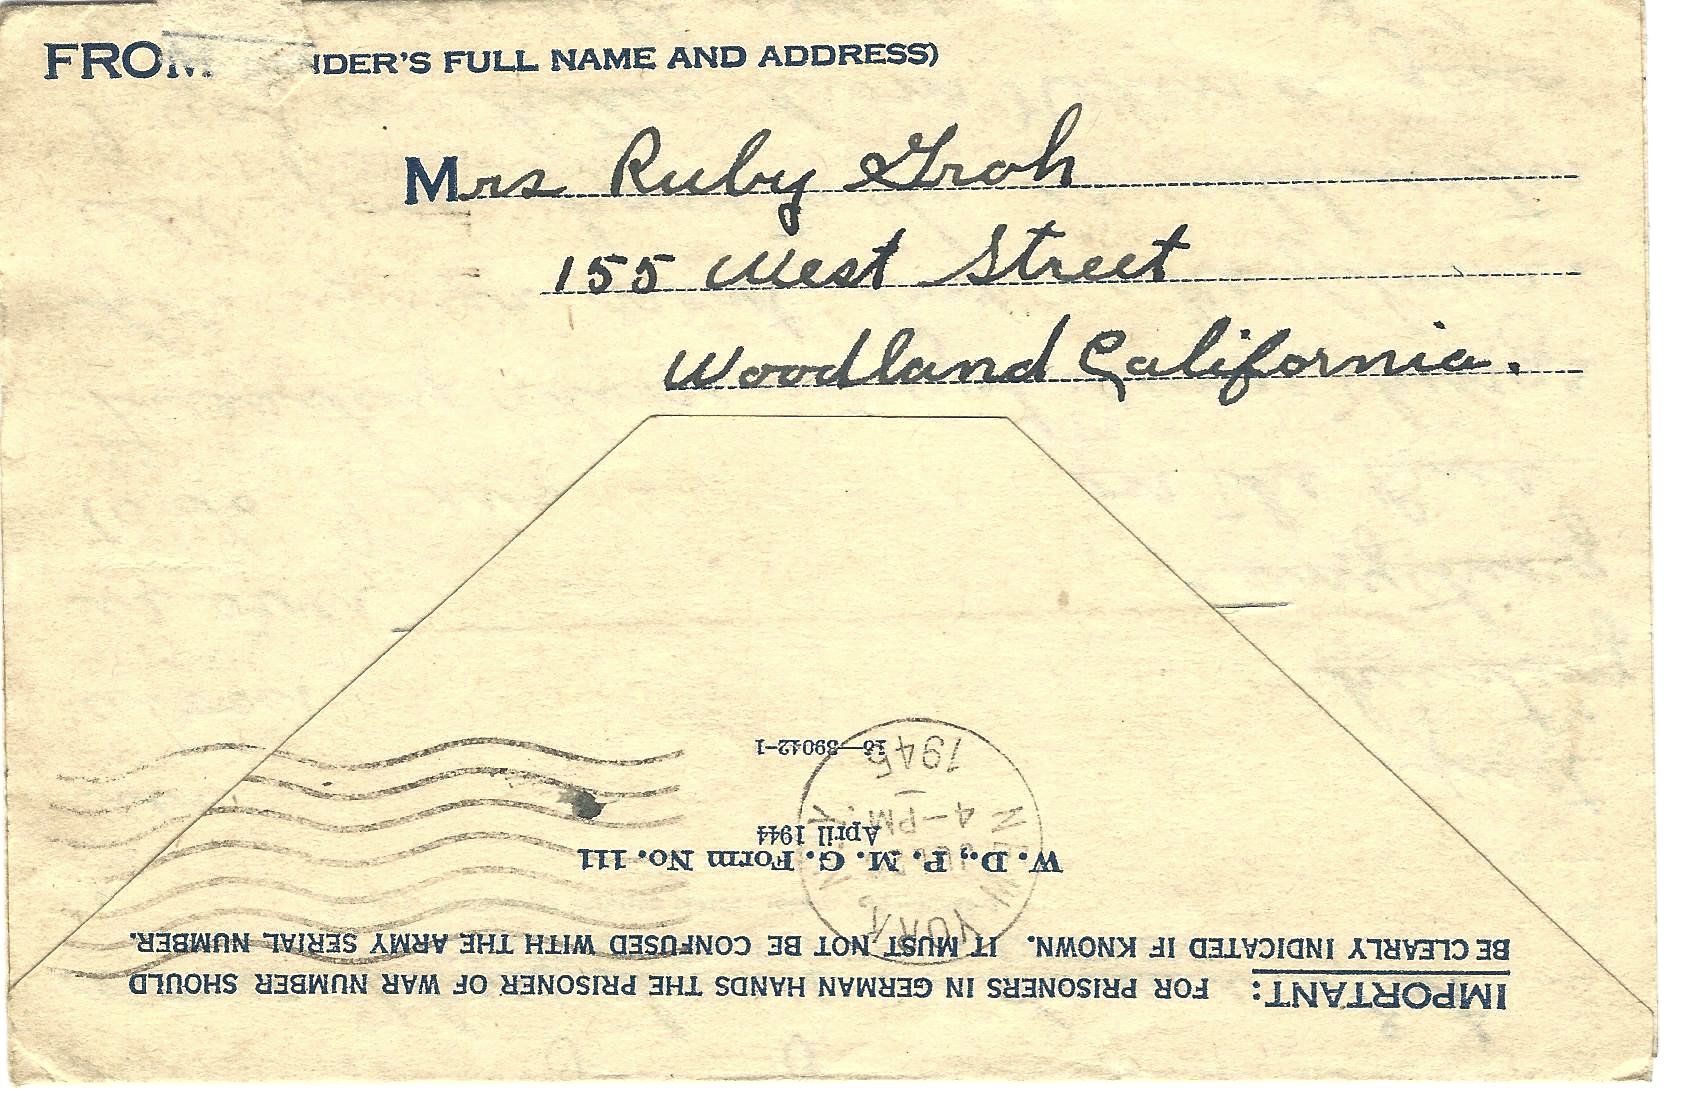 FROM NDER'S FULL NAME AND ADDRESS)
Mrs Ruby Groh
155 West Street
Woodland California.
IMPORTANT: FOR PRISONERS IN GERMAN HANDS THE PRISONER OF WAR NUMBER SHOULD
BE CLEARLY INDICATED IF KNOWN. IT MUST NOT BE CONFUSED WITH THE ARMY SERIAL NUMBER.
W. D., P. M. G. Form No. 111
April 1944
16—39042-1
YORK, N.
4-PM
1945